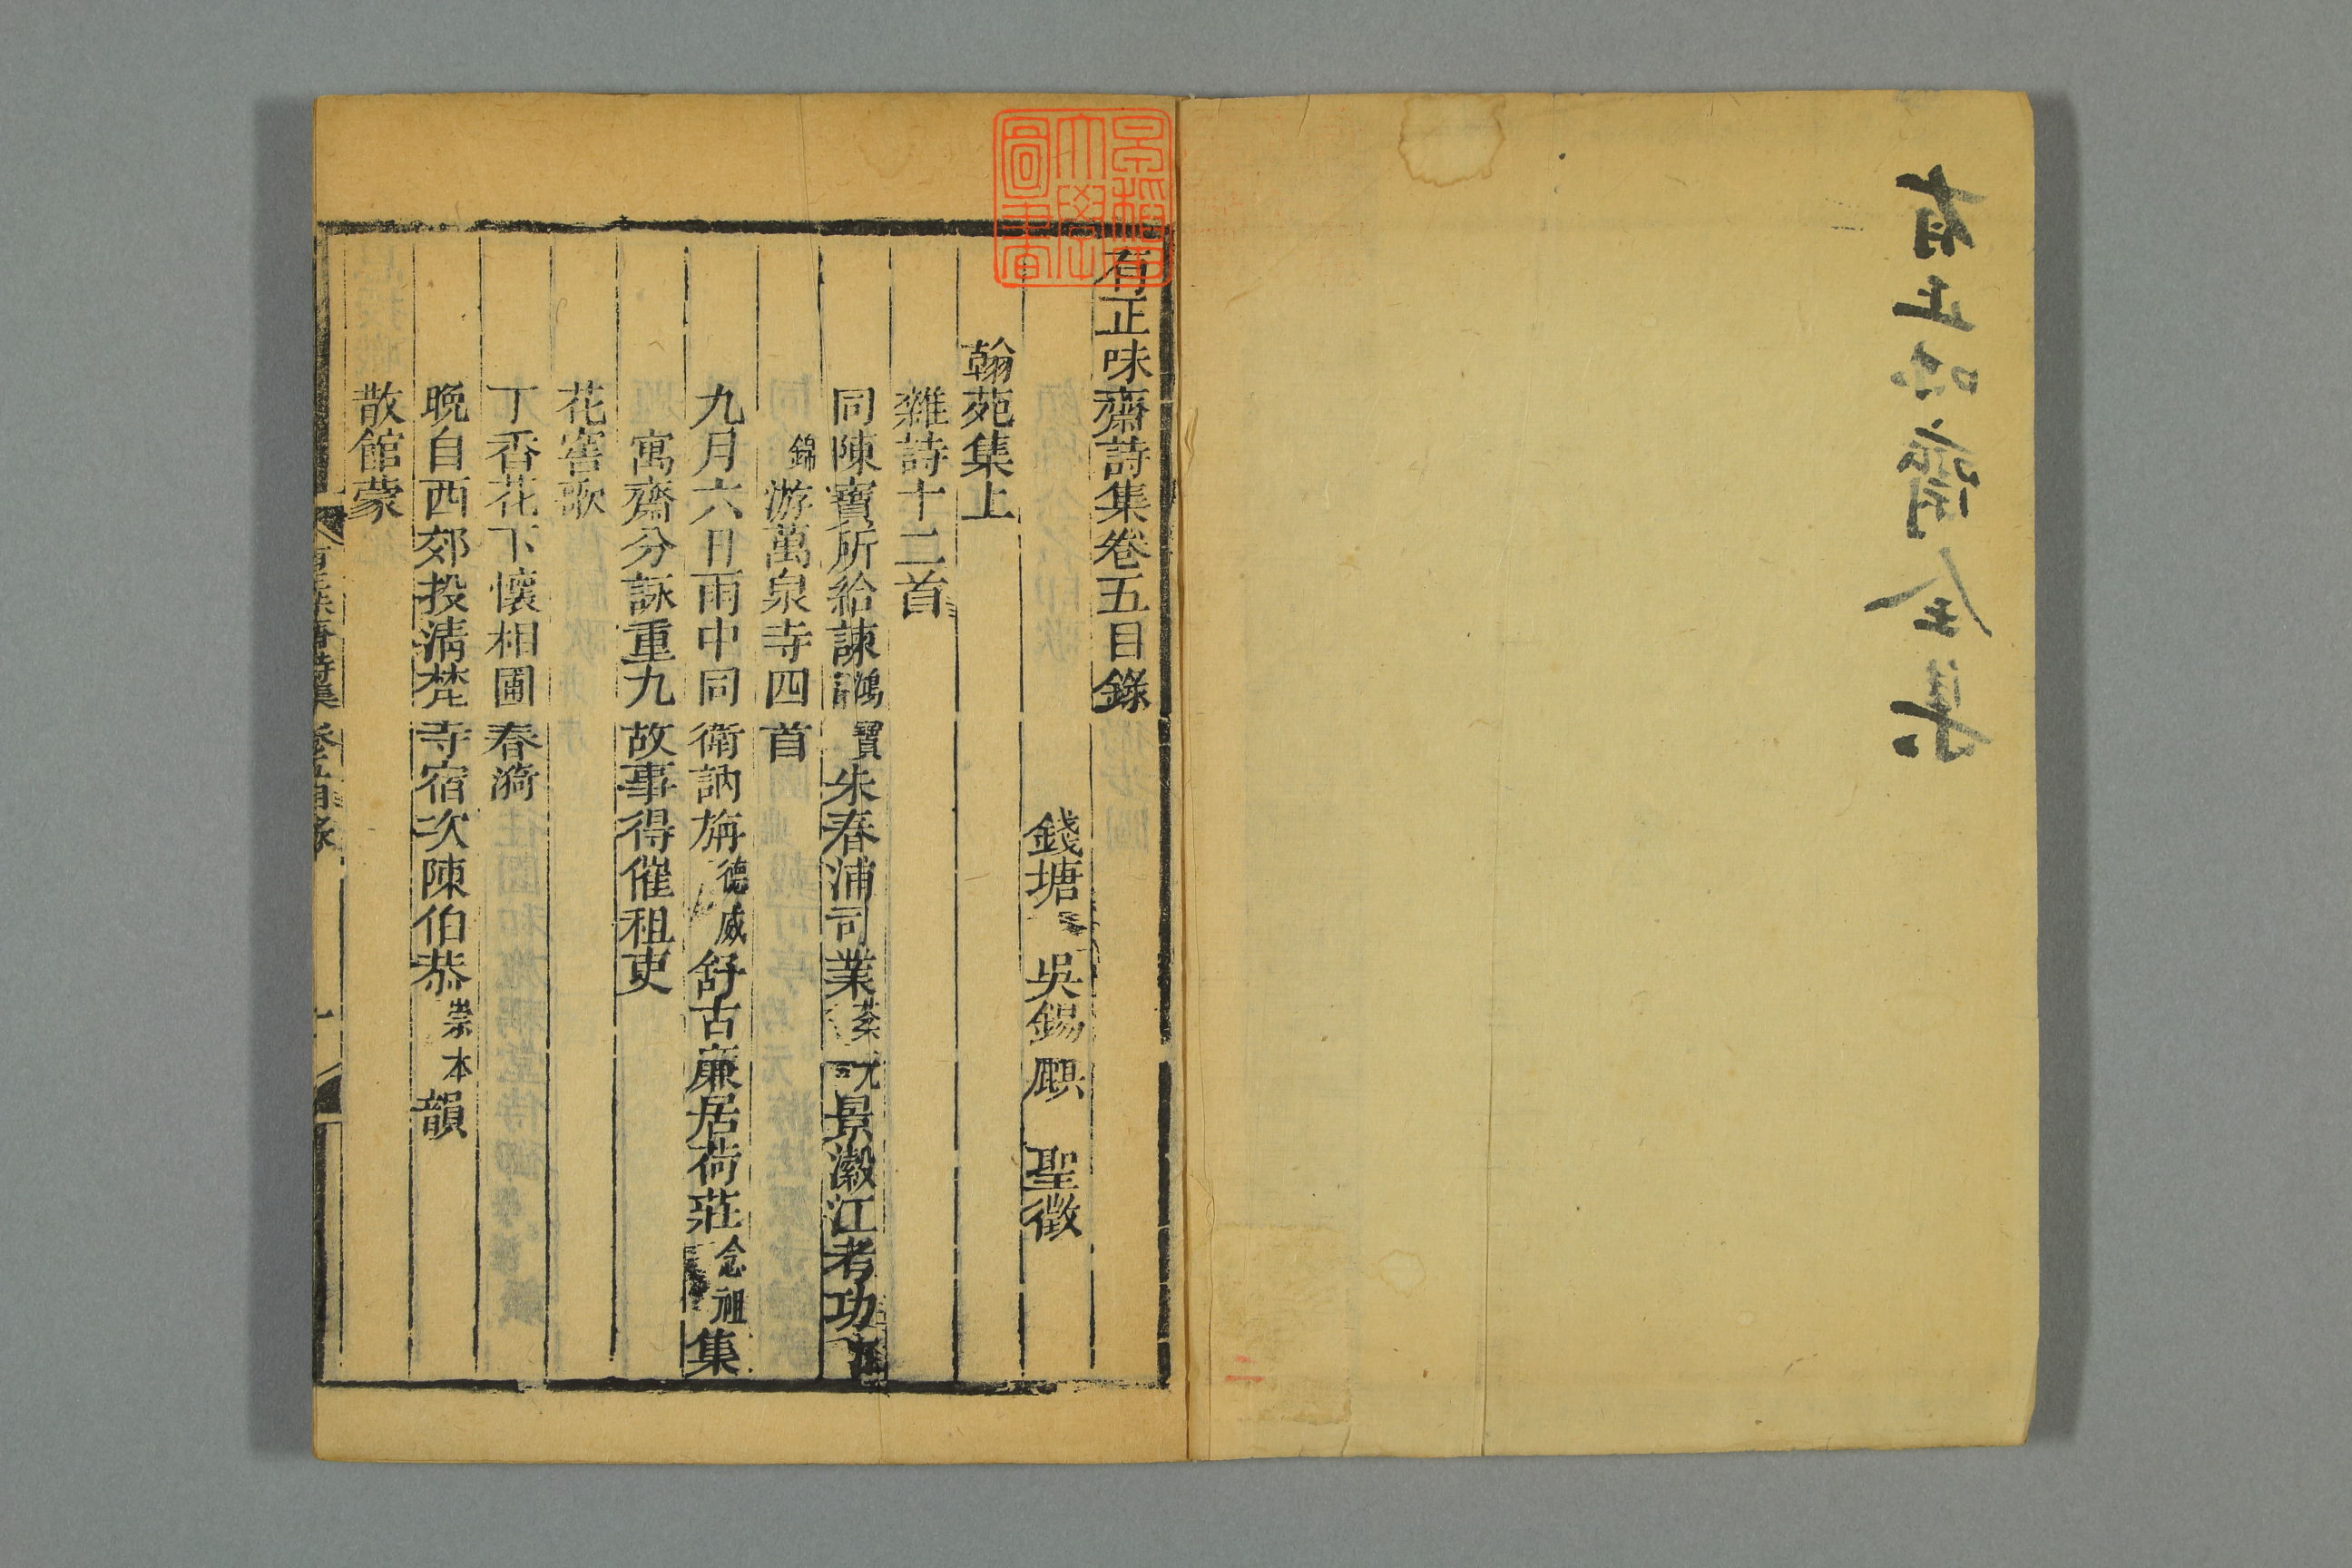 有正味齋全集
早稻田大學圖書
有正味齋詩集卷五目錄
錢塘 吳錫麒 聖徵
翰苑集上
雜詩十二首
同陳寶所給諫鴻寶朱春浦司業棻元景澂江考功
錦游萬泉寺四首
九月六日雨中同衛訥旃德威舒古廉居荷莊念祖集
寓齋分詠重九故事得催租吏
花窖歌
丁香花下懷相圃春漪
晚自西郊投清梵寺宿次陳伯恭崇本韻
散館蒙
有正味齋詩集 卷五目錄 一
二